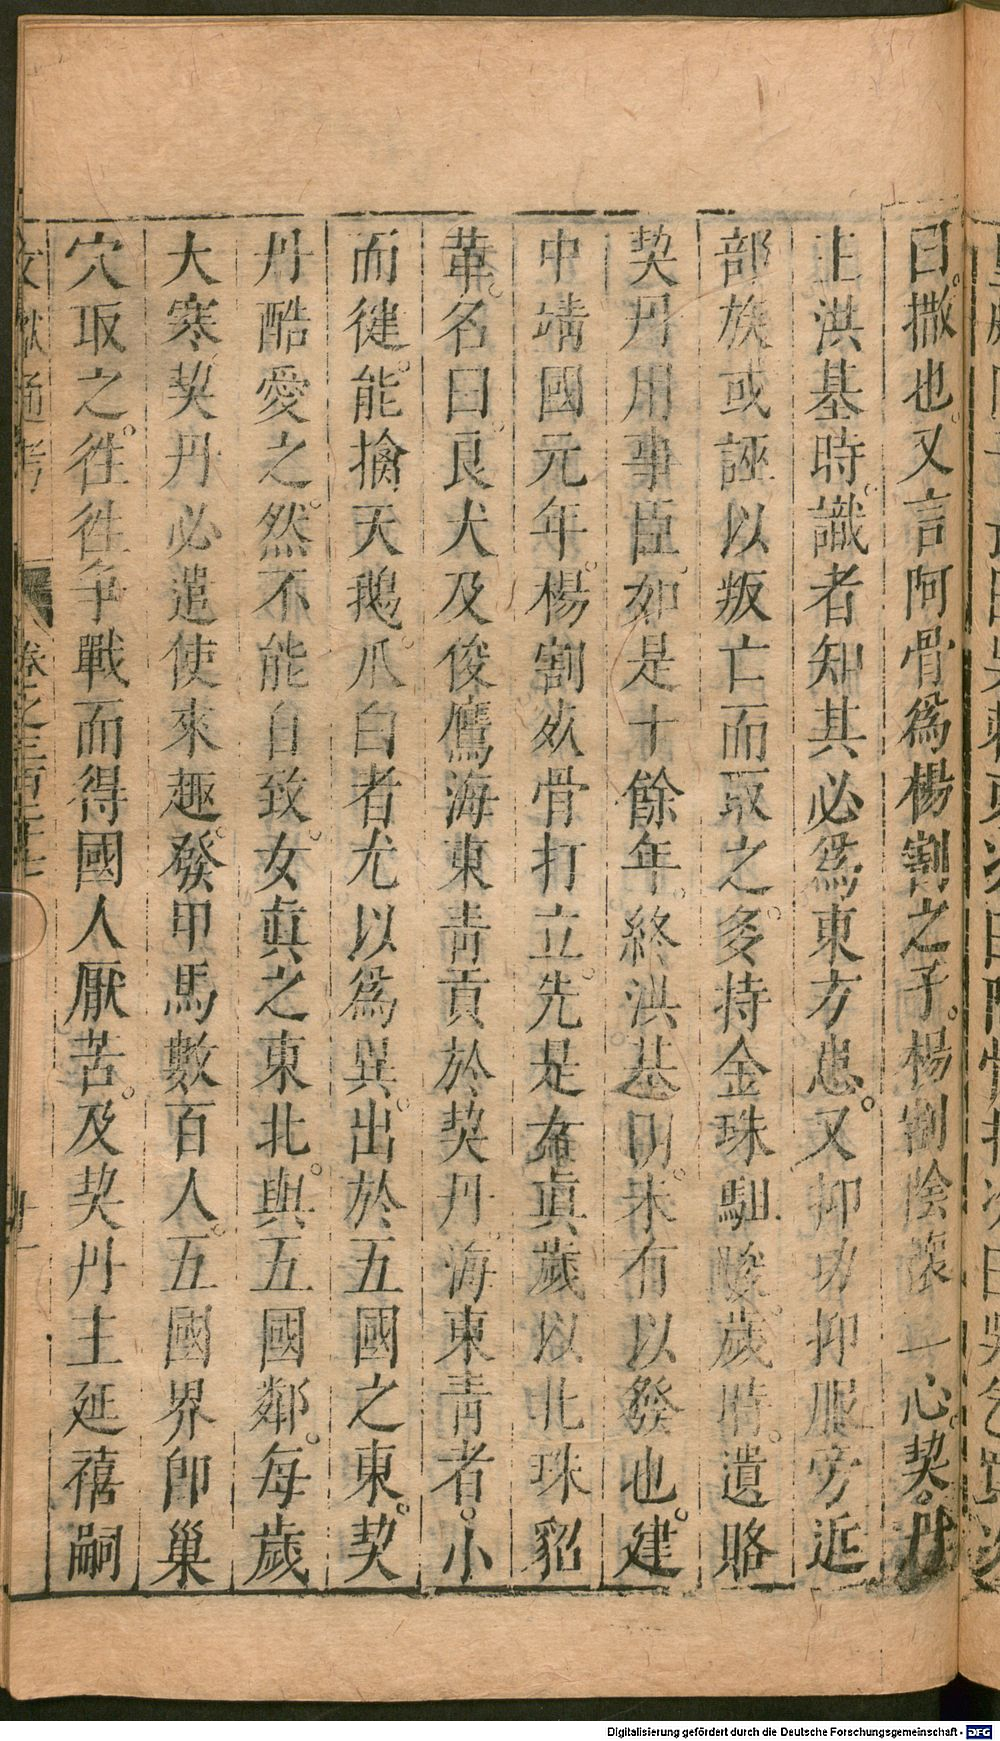 曰撒也又言阿骨爲楊割之子楊割陰懷一心契丹
主洪基時識者知其必爲東方患又抑功抑服旁近
部族或誣以叛亡而取之多持金珠馹駿歲時遺賂
契丹用事臣如是十餘年終洪基明未有以發也建
中靖國元年楊割死骨打立先是女真歲以北珠貂
革名曰良犬及俊鷹海東青貢於契丹海東青者小
而健能擒天鵝爪白者尤以爲異出於五國之東契
丹酷愛之然不能自致女真之東北與五國鄰每歲
大寒契丹必遣使來趣發甲馬數百人五國界卽巢
穴取之往往争戰而得國人厭苦及契丹主延禧嗣
文獻通考 卷之三百二十七
Digitalisierung gefördert durch die Deutsche Forschungsgemeinschaft - DFG